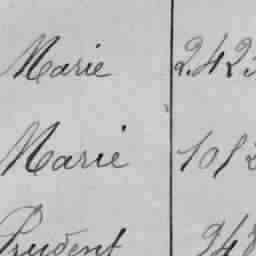 Marie 2.42
Marie 101
Prudent 94